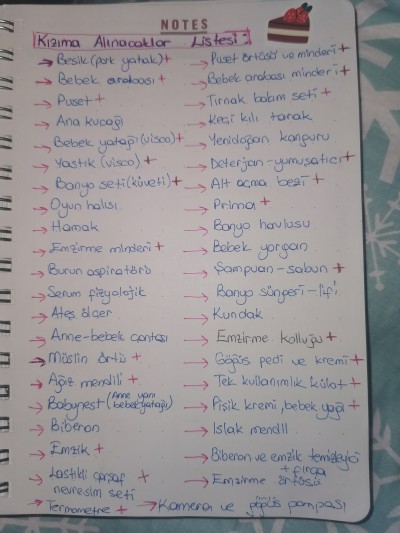 NOTES
Kızıma Alınacaklar Listesi:
→ Beşik (park yatak) +
→ Bebek arabası +
→ Puset +
→ Ana kucağı
→ Bebek yatağı (visco) +
→ Yastık (visco) +
→ Banyo seti (küveti) +
→ Oyun halısı
→ Hamak
→ Emzirme minderi +
→ Burun aspiratörü
→ Serum fizyolojik
→ Ateş ölçer
→ Anne-bebek çantası
→ Müslin örtü +
→ Ağız mendili +
→ Babynest (Anne yanı bebek yatağı)
→ Biberon
→ Emzik +
→ Lastikli çarşaf +
nevresim seti
→ Termometre +
→ Puset örtüsü ve minderi +
→ Bebek arabası minderi +
→ Tırnak bakım seti +
→ Keçi kılı tarak
→ Yenidoğan kanguru
→ Deterjan-yumuşatıcı +
→ Alt açma bezi +
→ Prima +
→ Banyo havlusu
→ Bebek yorgan
→ Şampuan-sabun +
→ Banyo süngeri-lifi
→ Kundak
→ Emzirme kolluğu +
→ Göğüs pedi ve kremi +
→ Tek kullanımlık külot +
→ Pişik kremi, bebek yağı +
→ Islak mendil
→ Biberon ve emzik temizleyici
+ fırça
→ Emzirme örtüsü
→ Kamera ve göğüs pompası